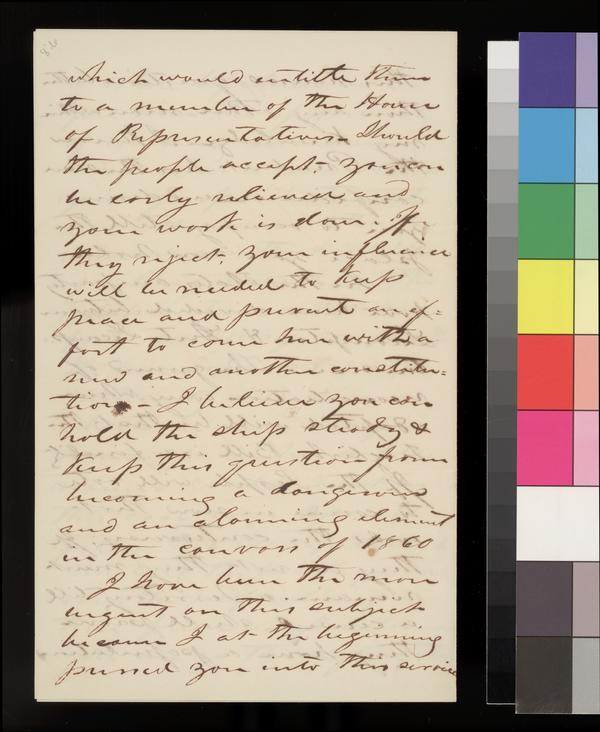 which would entitle them
to a member of the House
of Representatives. Should
the people accept, you can
be early relieved and
your work is done. If
they reject, your influence
will be needed to keep
peace and prevent an ef=
fort to come here with a
new and another constitu=
tion - I believe you can
hold the ship steady &
keep this question from
becoming a dangerous
and an alarming element
in the canvass of 1860
I have been the more
urgent on this subject
because I at the beginning
pressed you into this service